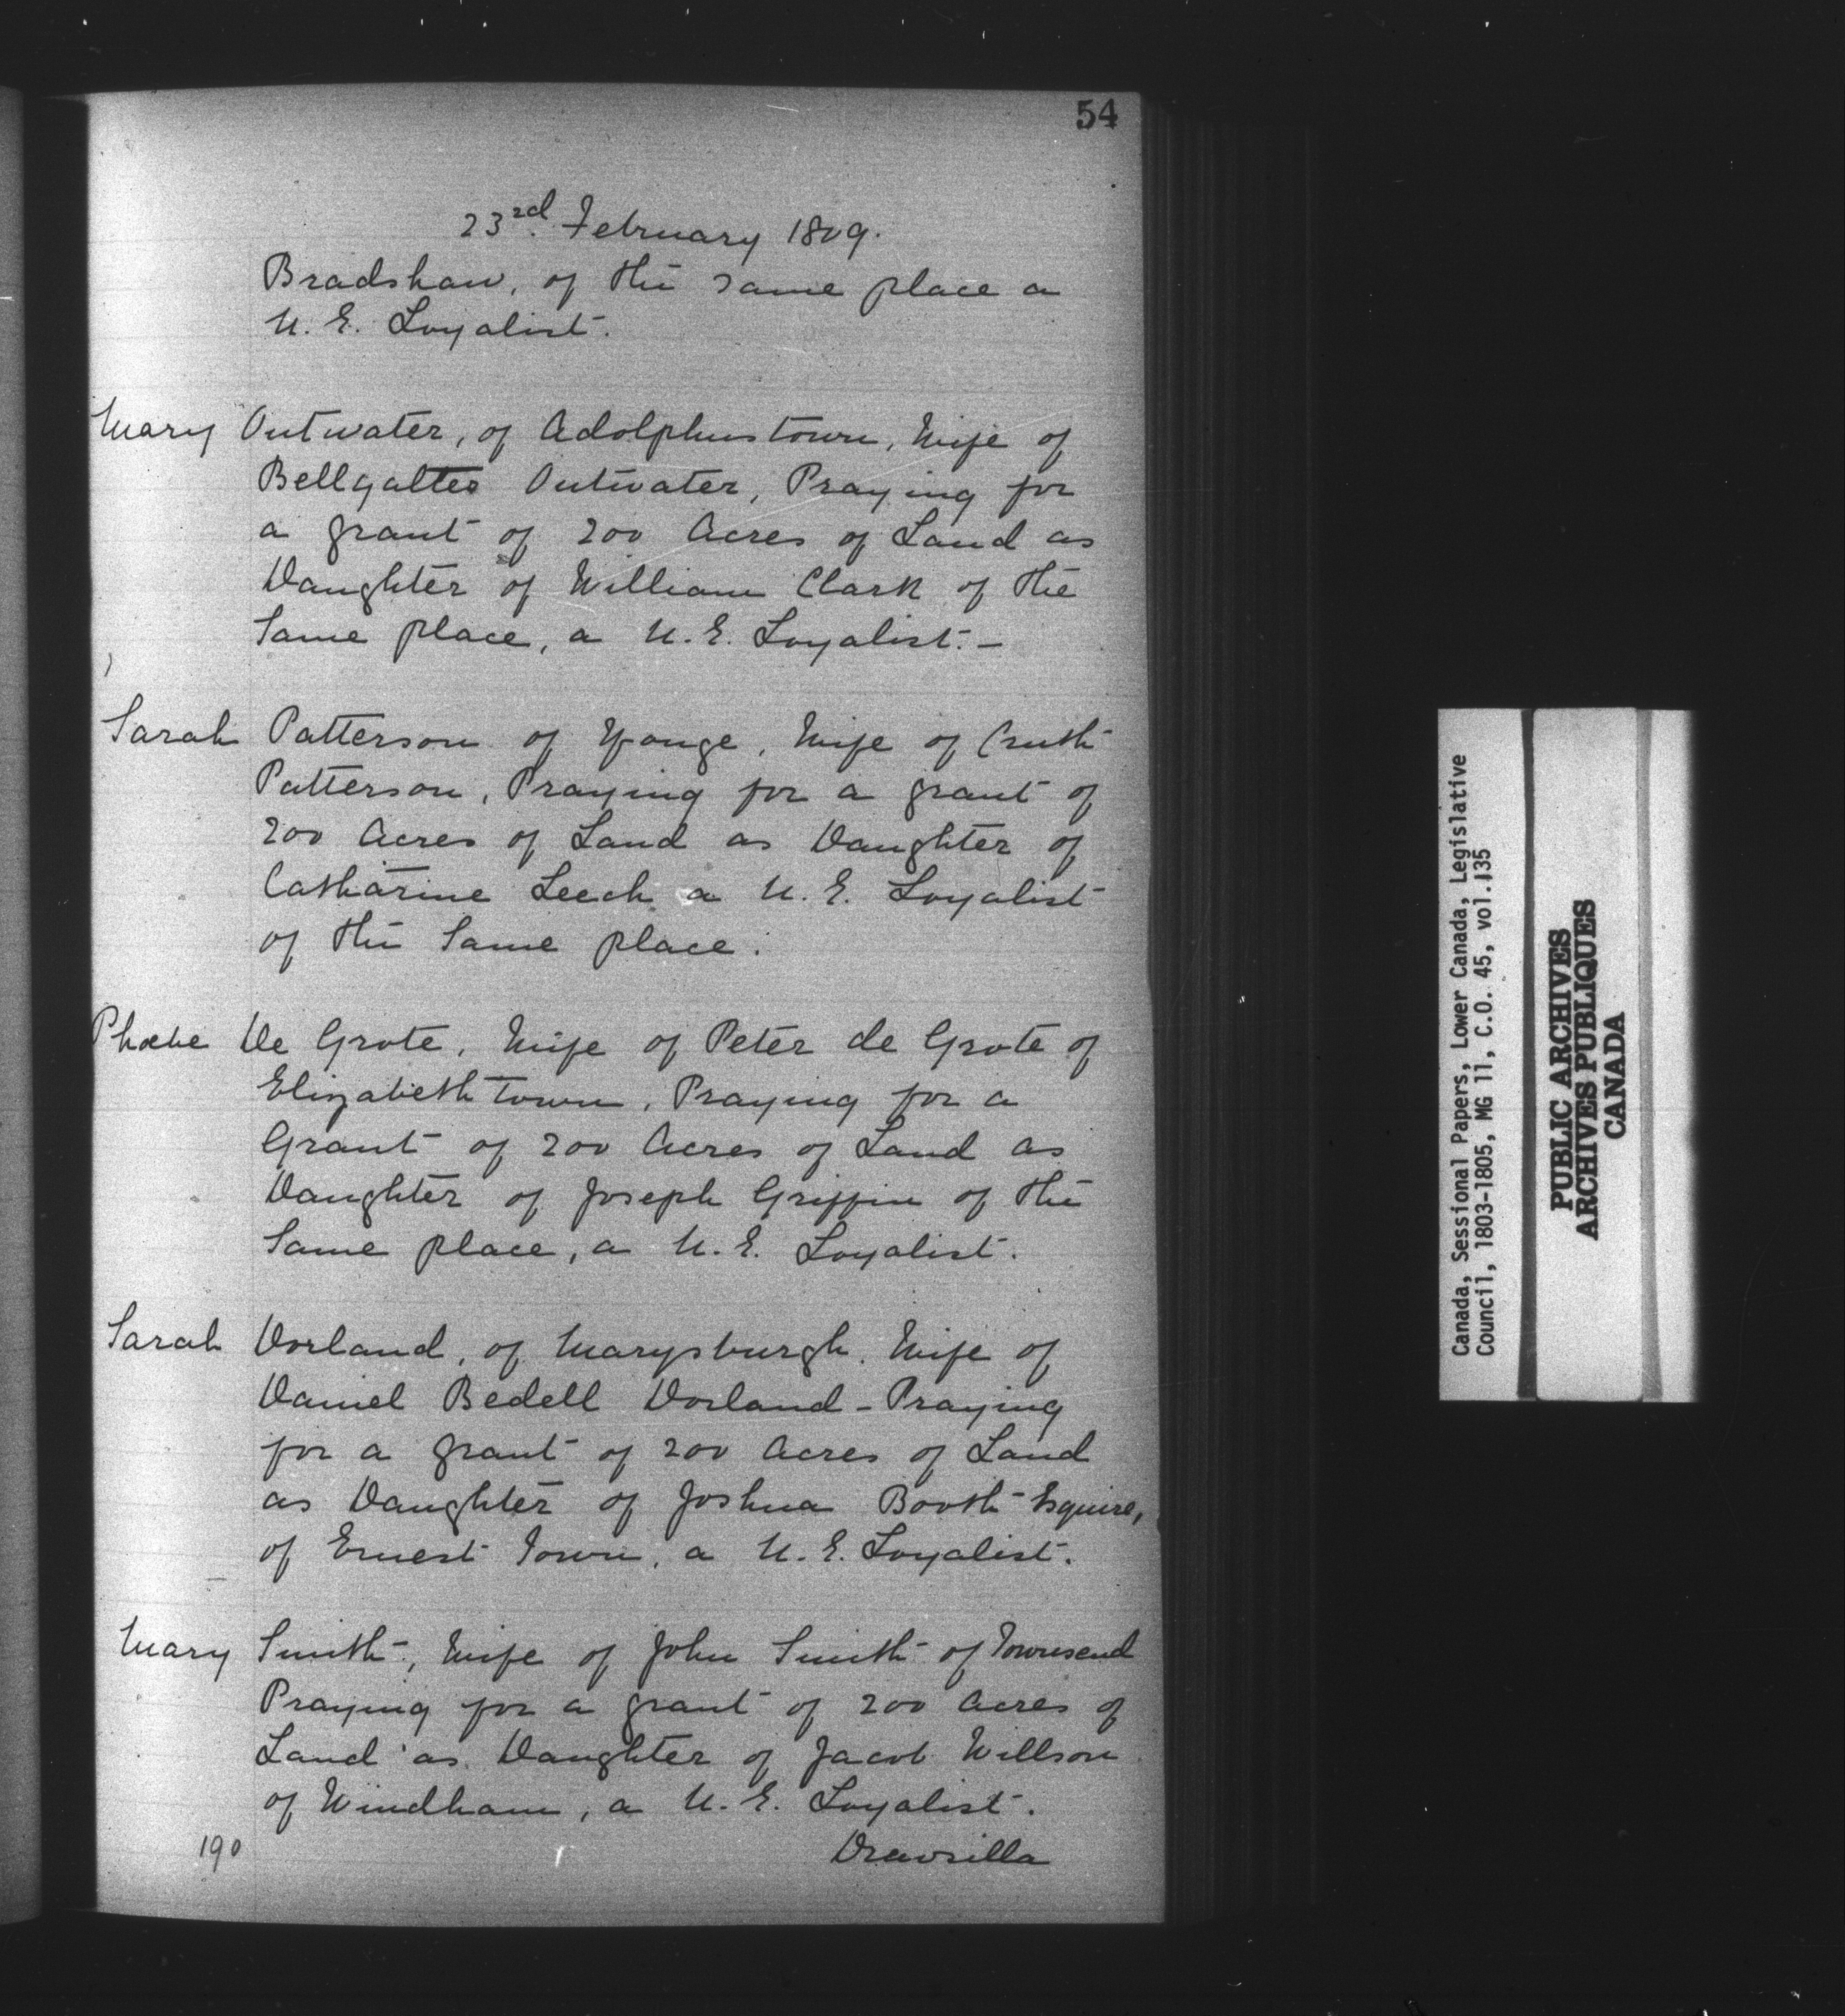 54
23rd. February 1809.
Bradshaw, of the same place a
U. E. Loyalist.
Mary Outwater, of Adolphustown, Wife of
Bellgaltes Outwater, Praying for
a grant of 200 Acres of Land as
Daughter of William Clark of the
Same place, a U. E. Loyalist. -
Sarah Patterson of Yonge, Wife of
Patterson, Praying for a grant of
200 Acres of Land as Daughter of
Catharine Leech a U. E. Loyalist
of the Same place.
Phoebe De Grote, Wife of Peter de Grote of
Elizabethtown, Praying for a
Grant of 200 Acres of Land as
Daughter of Joseph Griffin of the
Same place, a U. E. Loyalist.
Sarah Dorland, of Marysburgh, Wife of
Daniel Bedell Dorland - Praying
for a grant of 200 Acres of Land
as Daughter of Joshua Booth Esquire,
of Ernest Town, a U. E. Loyalist.
Mary Smith, Wife of John Smith of Townsend
Praying for a grant of 200 Acres of
Land as Daughter of Jacob Willson
of Windham, a U. E. Loyalist.
190
Canada, Sessional Papers, Lower Canada, Legislative
Council, 1803-1805, MG 11, C.O. 45, vol.135
PUBLIC ARCHIVES
ARCHIVES PUBLIQUES
CANADA